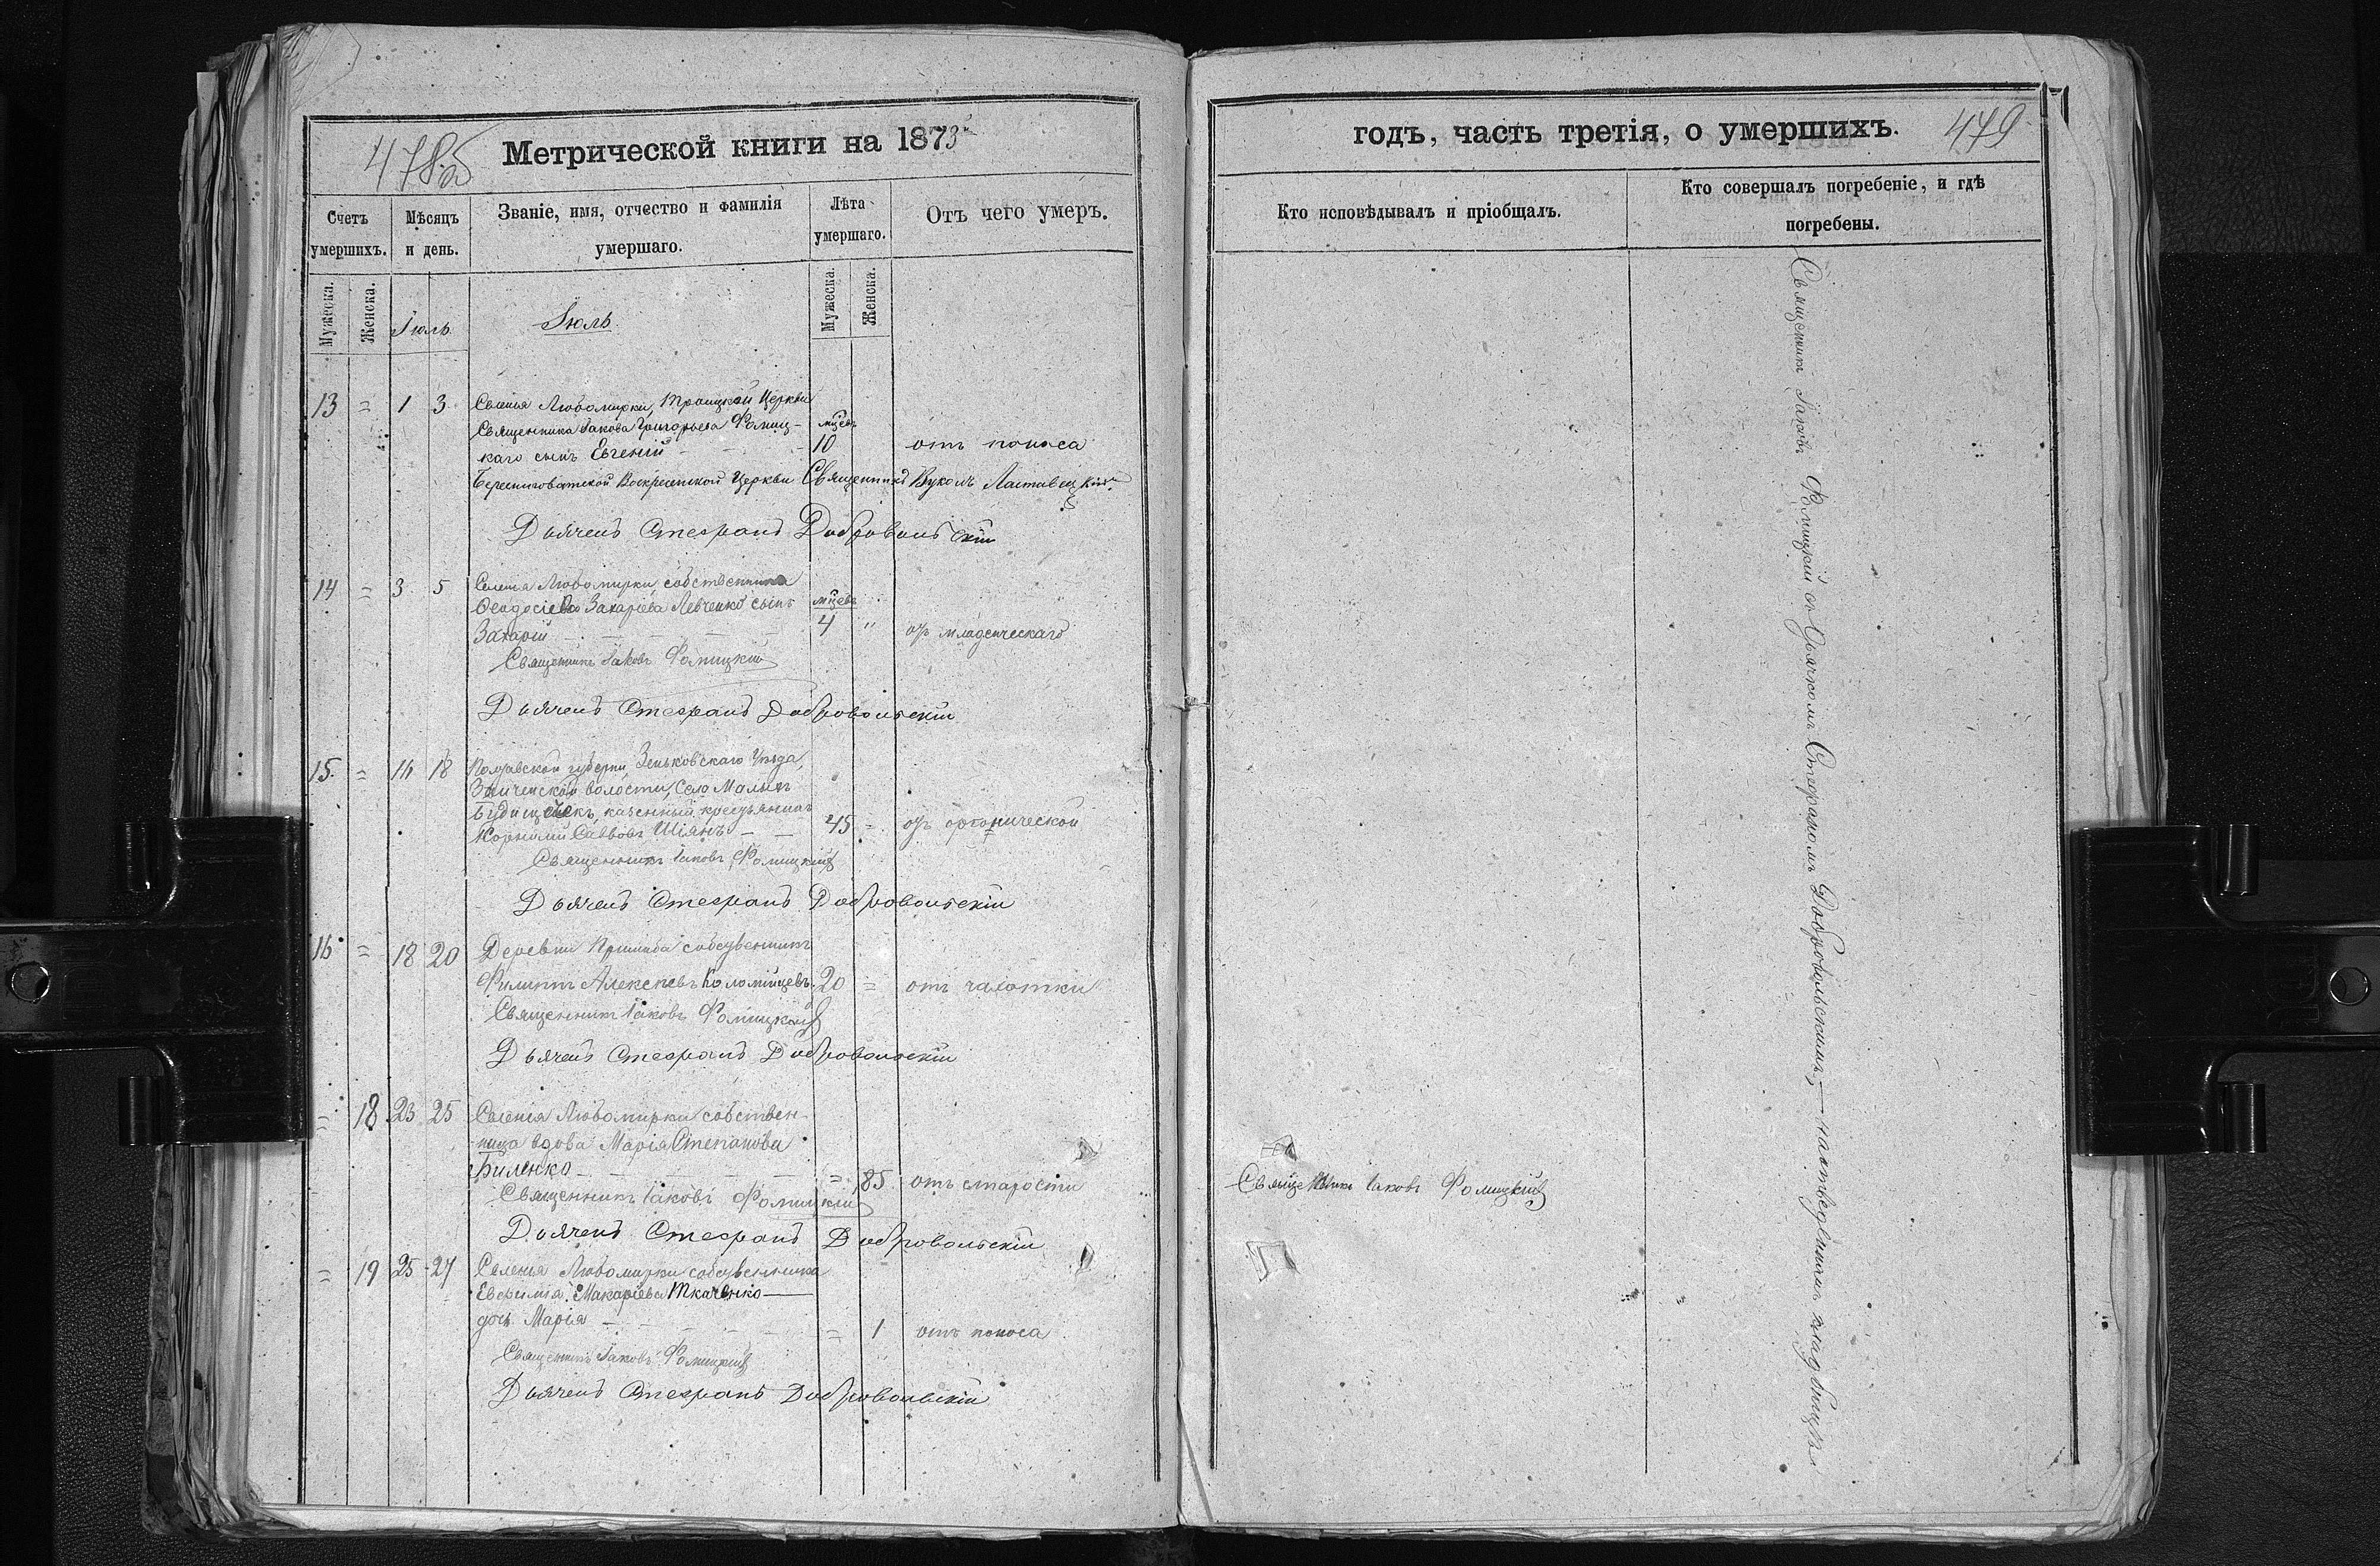 478об
Метрической книги на 1873
Счетъ умершихъ.
Мѣсяцъ и день.
Званіе, имя, отчество и фамилія умершаго.
Лѣта умершаго.
Отъ чего умеръ.
Мужеска.
Женска.
Мужеска.
Женска.
Іюль
Іюль
13 = 1 3 Селенія Любомирки, Троицкой Церкви
Священника Іакова Григорьева Фомиц- мцевъ
каго сынъ Евгеній 10 отъ поноса
Воскресенской Церкви Священникъ Вуколъ
Дьячекъ Стефанъ Добровольскій
14 = 3 5 Селенія Любомирки, собственника
Феодосіева Захаріева Левченко сынъ мцевъ
Захарій 4 " отъ младенческаго
Священникъ Іаковъ Фомицкій
Дьячекъ Стефанъ Добровольскій
15. = 16 18 Полтавской губерніи, Зеньковскаго Уѣзда,
волости, Село Малыхъ
казенный крестьянинъ
Корнилій Саввовъ Шіянъ 45 = отъ
Священникъ Іаковъ Фомицкій
Дьячекъ Стефанъ Добровольскій
16. = 18 20 Деревни собственникъ
Филиппъ Алексѣевъ Коломійцевъ. 20 = отъ чахотки
Священникъ Іаковъ Фомицкій
Дьячекъ Стефанъ Добровольскій
= 18 23 25 Селенія Любомирки собствен-
ница вдова Марія Степанова
Биленко = 85 отъ старости
Священникъ Іаковъ Фомицкій
Дьячекъ Стефанъ Добровольскій
= 19 25 27 Селенія Любомирки собственника
Евфимія Макаріева Ткаченко
дочь Марія = 1 отъ поноса
Священникъ Іаковъ Фомицкій
Дьячекъ Стефанъ Добровольскій
годъ, часть третія, о умершихъ.
479
Кто исповѣдывалъ и пріобщалъ.
Кто совершалъ погребеніе, и гдѣ
погребены.
Священникъ Іаковъ Фомицкій
Священникъ Іаковъ Фомицкій съ Дьячкомъ Стефаномъ Добровольскимъ, — кладбищѣ